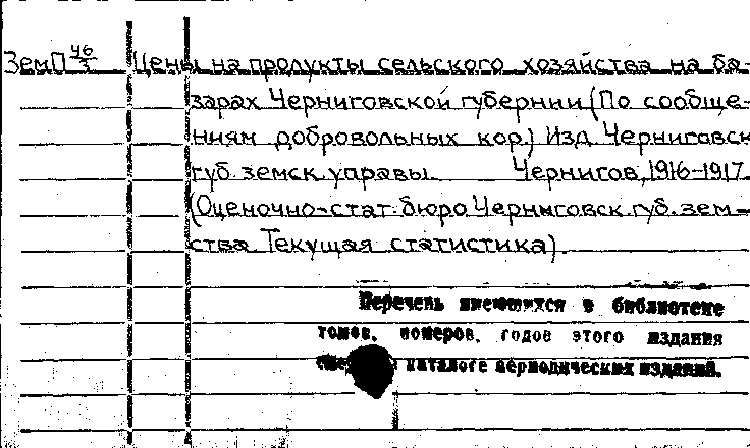 ЗемП 46/3 Цены на продукты сельского хозяйства на ба-
зарах Черниговской губернии (По сообще-
ниям добровольных кор.) Изд. Черниговск
губ. земск. управы. Чернигов, 1916-1917.
(Оценочно-стат. бюро Черниговск. губ. зем-
ства Текущая статистика)
Перечень имеющихся в библиотеке
томов, номеров, годов этого издания
каталоге периодических изданий.